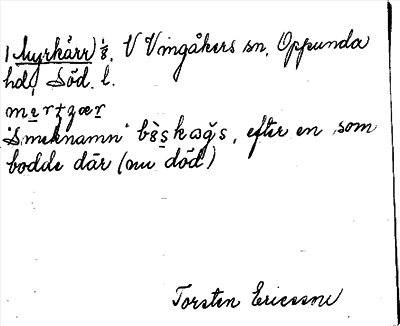 1 Myrkärr) 1/8, V Vingåkers sn, Oppunda
hd, Söd. l.
"Smeknamn" , efter en som
bodde där (nu död)
Torsten Ericsson